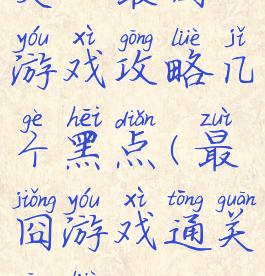 yóu xì gōng lüè jǐ
游戏攻略几
gè hēi diǎn zuì
个黑点(最
jiǒng yóu xì tōng guān
囧游戏通关